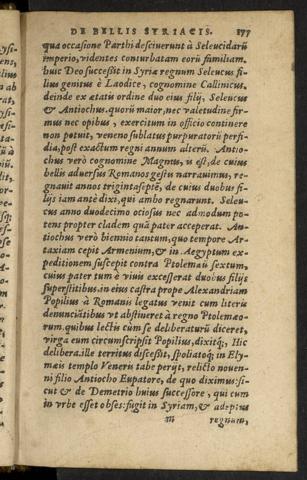 DE BELLIS SYRIACIS. 177
qua occasione Parthi desciuerunt à Seleucidarũ
imperio, videntes conturbatam eorũ familiam.
huic Deo successit in Syria regnum Seleucus fi-
lius genitus è Laodice, cognomine Callinicus.
deinde ex ætatis ordine duo eius filij, Seleucus
& Antiochus. quorũ maior, nec valetudine fir-
mus nec opibus, exercitum in officio continere
non potuit, veneno sublatus purpuratorũ perfi-
dia, post exactum regni annum alterũ. Antio-
chus verò cognomine Magnus, is est, de cuius
bellis aduersus Romanos gestis narrauimus, re-
gnauit annos trigintaseptẽ, de cuius duobus fi-
lijs iam antè dixi, qui ambo regnarunt. Seleu-
cus anno duodecimo otiosus nec admodum po-
tens propter cladem quã pater acceperat. An-
tiochus verò biennio tantum, quo tempore Ar-
taxiam cepit Armenium, & in Aegyptum ex-
peditionem suscepit contra Ptolemæũ sextum,
cuius pater tum è viuis excesserat duobus filijs
superstitibus. in eius castra prope Alexandriam
Popilius à Romanis legatus venit cum literis
denunciãtibus vt abstineret à regno Ptolemæo-
rum. quibus lectis cum se deliberaturũ diceret,
virga eum circumscripsit Popilius, dixitq;, Hic
delibera. ille territus discessit, spoliatoq; in Ely-
mais templo Veneris tabe perijt, relicto nouen-
ni filio Antiocho Eupatore, de quo diximus: si-
cut & de Demetrio huius successore, qui cum
in vrbe esset obses: fugit in Syriam, & adeptus
m regnum,